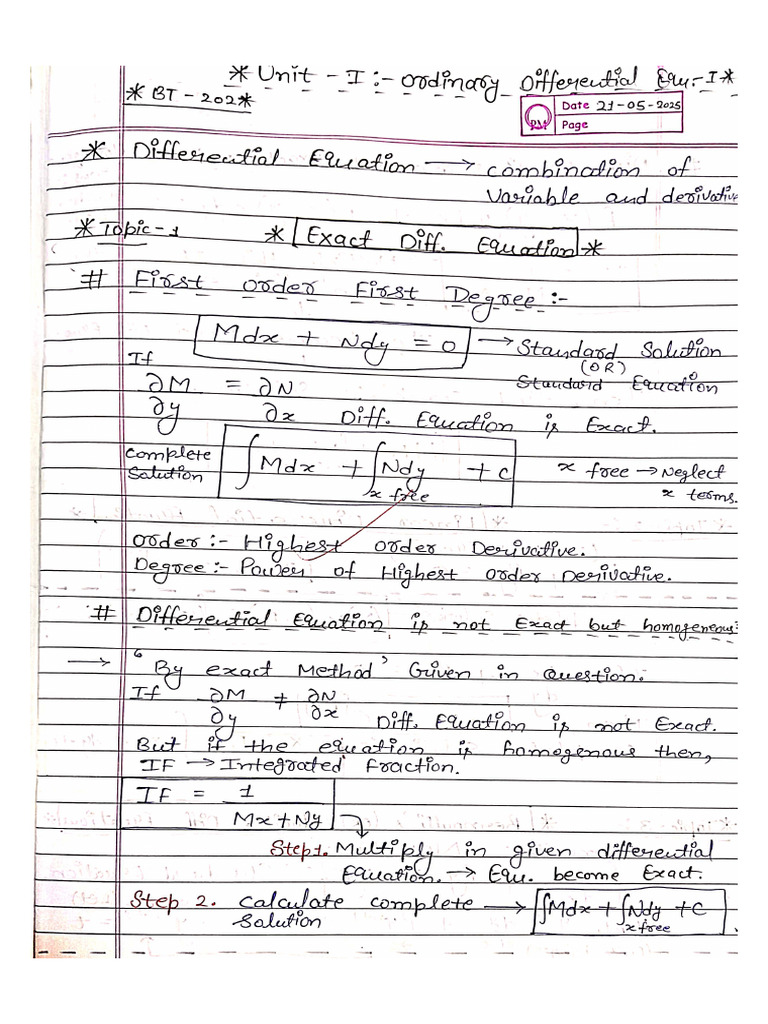 * Unit - I :- Ordinary Differential Equ.-I *
* BT - 202 *
Date 21-05-2025
Page
* Differential Equation → combination of
variable and derivative
* Topic-1 * Exact Diff. Equation *
# First order First Degree :-
Mdx + Ndy = 0 → Standard Solution
(OR)
Standard Equation
If
∂M/∂y = ∂N/∂x Diff. Equation is Exact.
Complete Solution ∫Mdx + ∫Ndy + c x free → Neglect
x free x terms.
Order :- Highest order Derivative.
Degree :- Power of Highest order Derivative.
# Differential Equation is not Exact but homogeneous:
→ "By exact Method' Given in Question.
If ∂M/∂y ≠ ∂N/∂x Diff. Equation is not Exact.
But if the equation is homogenous then,
IF → Integrated fraction.
IF = 1/Mx+Ny
Step1. Multiply in given differential
Equation. → Equ. become Exact.
Step 2. Calculate complete → ∫Mdx + ∫Ndy + C
Solution x free